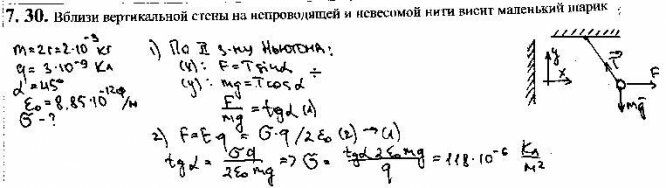 7. 30. Вблизи вертикальной стены на непроводящей и невесомой нити висит маленький шарик
m=2г=2·10⁻³ кг
q = 3·10⁻⁹ Кл
α=45°
ε₀=8,85·10⁻¹² Ф/м
σ-?
1) По II з-ну Ньютона:
(x): F=Tsinα
(y): mg=Tcosα ÷
F/mg = tgα (1)
2) F=Eq = σ·q/2ε₀ (2) → (1)
tgα = σq/2ε₀mg => σ = tgα 2ε₀mg/q = 118·10⁻⁶ Кл/м²
y
x
T
F
mg